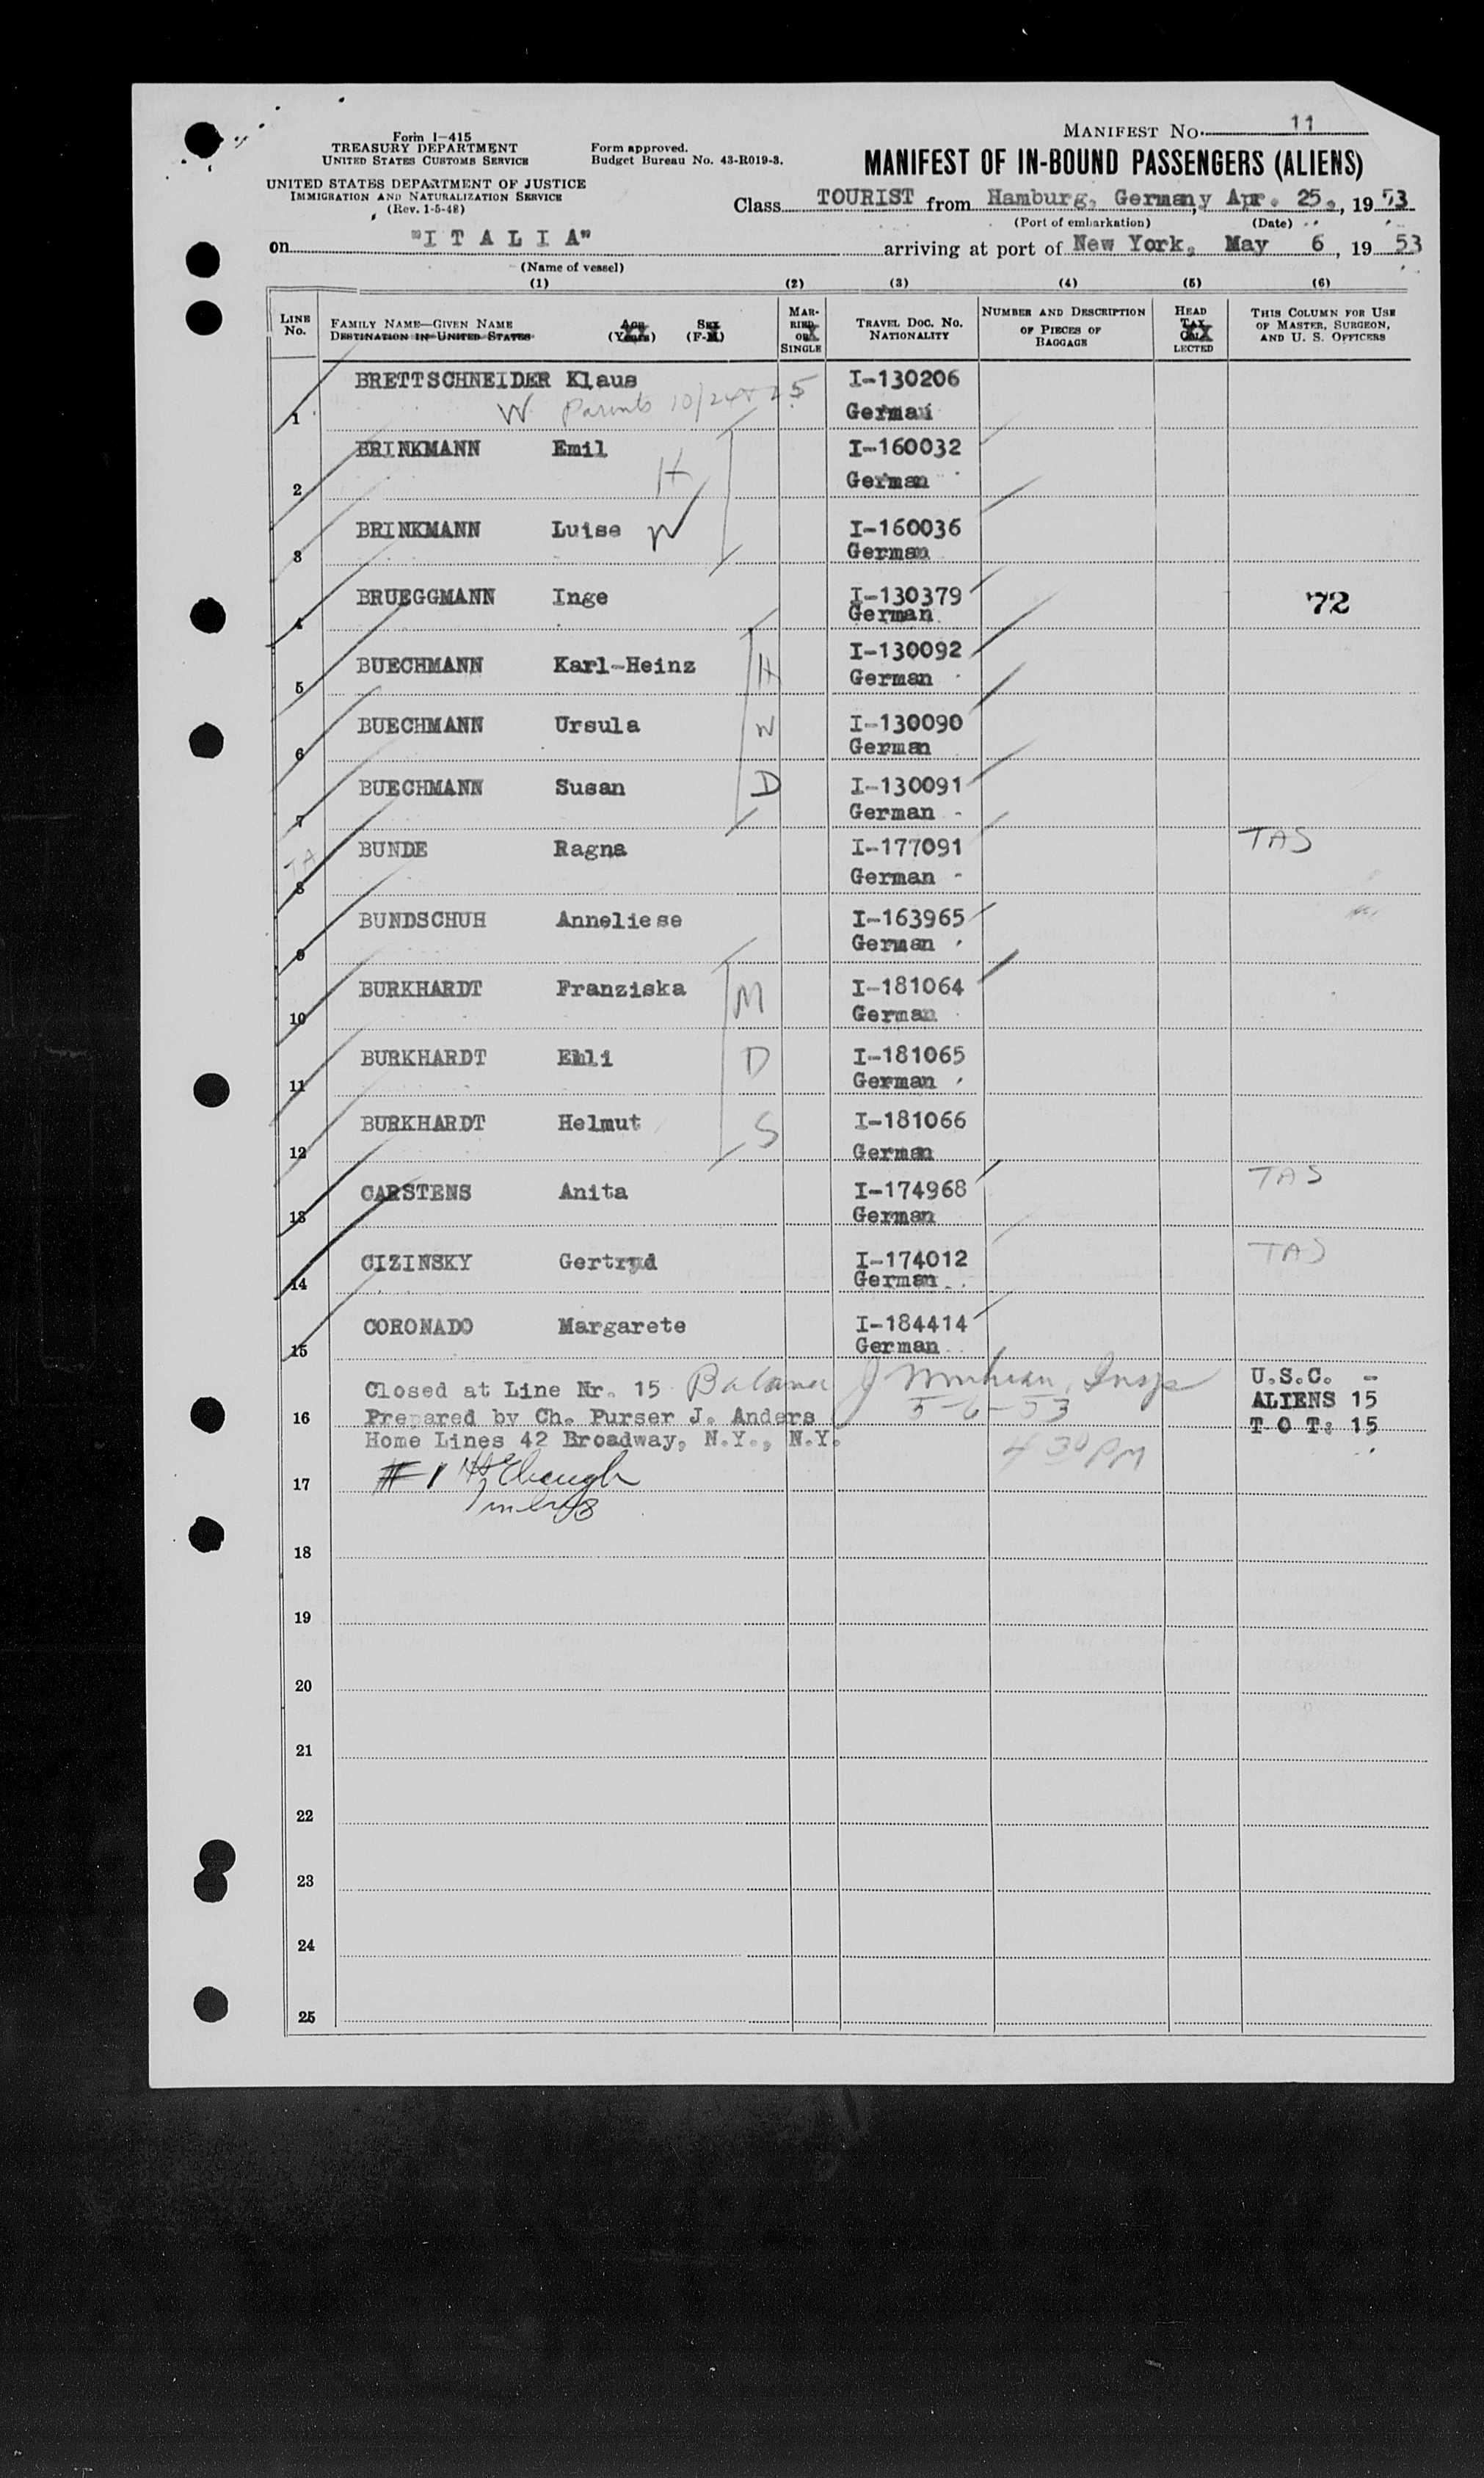 MANIFEST NO. 11
Form I-415
TREASURY DEPARTMENT
UNITED STATES CUSTOMS SERVICE
Form approved.
Budget Bureau No. 43-R019-3.
MANIFEST OF IN-BOUND PASSENGERS (ALIENS)
UNITED STATES DEPARTMENT OF JUSTICE
IMMIGRATION AND NATURALIZATION SERVICE
(Rev. 1-5-48)
Class TOURIST from Hamburg, Germany, Apr. 25., 1953
(Port of embarkation) (Date)
on "I T A L I A" arriving at port of New York, May 6, 1953
(Name of vessel)
(1) (2) (3) (4) (5) (6)
LINE No. FAMILY NAME—GIVEN NAME DESTINATION IN UNITED STATES AGE (Years) SEX (F-M) MARRIED OR SINGLE TRAVEL DOC. NO. NATIONALITY NUMBER AND DESCRIPTION OF PIECES OF BAGGAGE HEAD TAX COLLECTED THIS COLUMN FOR USE OF MASTER, SURGEON, AND U. S. OFFICERS
1 BRETTSCHNEIDER Klaus I-130206
W Parents 10/24 25 German
2 BRINKMANN Emil H I-160032
German
3 BRINKMANN Luise W I-160036
German
4 BRUEGGMANN Inge I-130379 72
German
5 BUECHMANN Karl-Heinz H I-130092
German
6 BUECHMANN Ursula W I-130090
German
7 BUECHMANN Susan D I-130091
German
TA 8 BUNDE Ragna I-177091 TAS
German
9 BUNDSCHUH Anneliese I-163965
German
10 BURKHARDT Franziska M I-181064
German
11 BURKHARDT Elli D I-181065
German
12 BURKHARDT Helmut S I-181066
German
13 CARSTENS Anita I-174968 TAS
German
14 CIZINSKY Gertrud I-174012 TAS
German
15 CORONADO Margarete I-184414
German
Closed at Line Nr. 15 Insp U.S.C. -
16 Prepared by Ch. Purser J. Anders 5-6-53 ALIENS 15
Home Lines 42 Broadway, N.Y., N.Y. T O T: 15
4 30 PM
17 #1
18
19
20
21
22
23
24
25